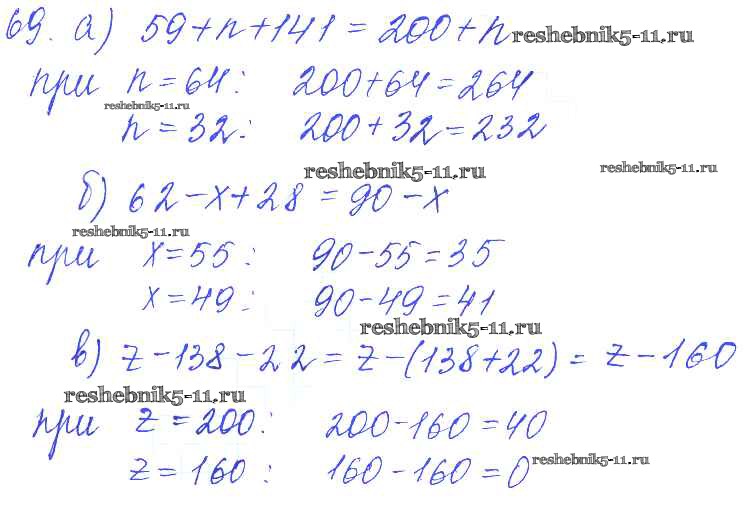 69. а) 59+n+141=200+n reshebnik5-11.ru
при n=64: 200+64=264
reshebnik5-11.ru
n=32: 200+32=232
reshebnik5-11.ru reshebnik5-11.ru
б) 62-x+28=90-x
reshebnik5-11.ru
при x=55: 90-55=35
x=49: 90-49=41
reshebnik5-11.ru
в) z-138-22=z-(138+22)=z-160
reshebnik5-11.ru
при z=200: 200-160=40
z=160: 160-160=0 reshebnik5-11.ru